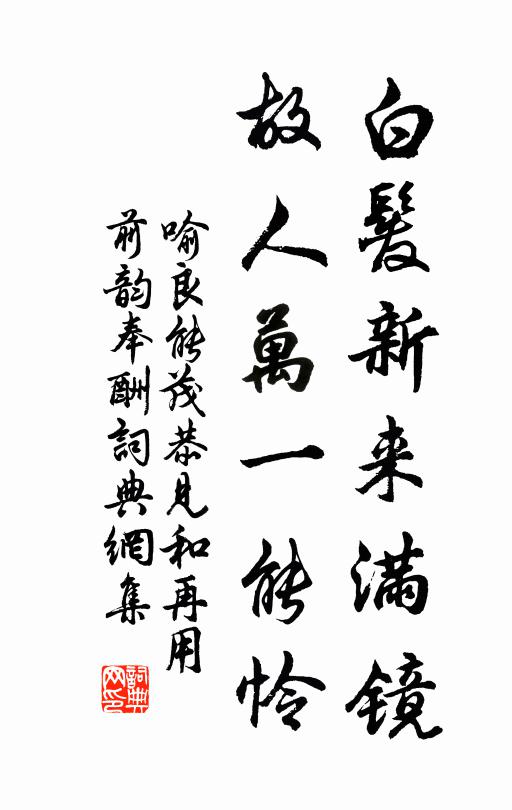 白髮新来满镜
故人萬一能怜
喻良能茂恭見和再用
前韵奉酬詞典網集
詞典网印